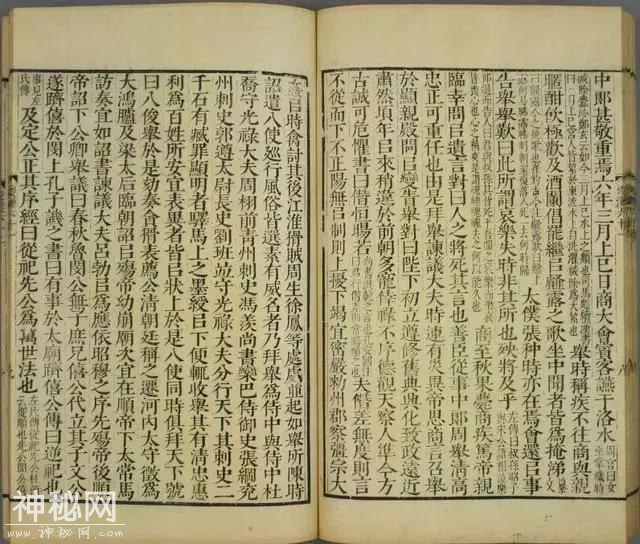 中郎甚敬重焉六年三月上巳日商大會賓客讌于洛水周官曰女巫掌歲時
祓除釁浴鄭玄云如今三月上巳水上之類也司馬彪續漢書曰三月上巳官人皆絜於東流水上自洗濯祓除爲大絜也舉時稱疾不往商與親
暱酣飲極歡及酒闌倡罷繼㠯䪥露之歌坐中聞者皆爲掩涕
太僕張种時亦在焉會還㠯事
告舉舉歎曰此所謂哀樂失時非其所也殃將及乎
商至秋果薨商疾篤帝親
臨幸問㠯遺言對曰人之將死其言也善臣從事中郎周舉清高
忠正可重任也由是拜舉諫議大夫時連有災異帝思商言召舉
於顯親殿問㠯變眚舉對曰陛下初立遵修舊典興化致政遠近
肅然頃年㠯來稍違於前朝多寵倖祿不序德觀天察人準今方
古誠可危懼書曰僭恒暘若夫僭差無度則言
不從而下不正陽無㠯制則上擾下竭宜密嚴敕州郡察彊宗大
姦㠯時禽討其後江淮猾賊周生徐鳳等處處並起如舉所陳時
詔遣八使巡行風俗皆選素有威名者乃拜舉爲侍中與侍中杜
喬守光祿大夫周栩前青州刺史馮羨尚書欒巴侍御史張綱兗
州刺史郭遵太尉長史劉班竝守光祿大夫分行天下其刺史二
千石有臧罪顯明者驛馬上之墨綬㠯下便輒收舉其有清忠惠
利爲百姓所安宜表異者皆㠯狀上於是八使同時俱拜天下號
曰八俊舉於是劾奏貪猾表薦公清朝廷稱之遷河內太守徵爲
大鴻臚及梁太后臨朝詔㠯殤帝幼崩廟次宜在順帝下太常馬
訪奏宜如詔書諫議大夫呂勃㠯爲應依昭穆之序先殤帝後順
帝詔下公卿舉議曰春秋魯閔公無子庶兄僖公代立其子文公
遂躋僖於閔上孔子譏之書曰有事於太廟躋僖公傳曰逆祀也
事見左氏傳及定公正其序經曰從祀先公爲萬世法也
神秘网
www.神秘网.com